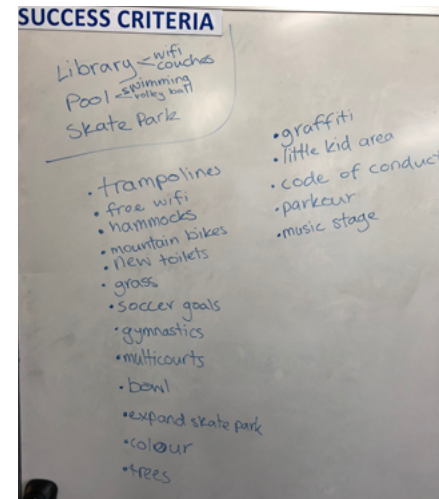 SUCCESS CRITERIA
Library < wifi
couches
Pool < swimming
volley ball
Skate Park
• trampolines
• free wifi
• hammocks
• mountain bikes
• new toilets
• grass
• soccer goals
• gymnastics
• multicourts
• bowl
• expand skate park
• colour
• trees
• graffiti
• little kid area
• code of conduct
• parkour
• music stage